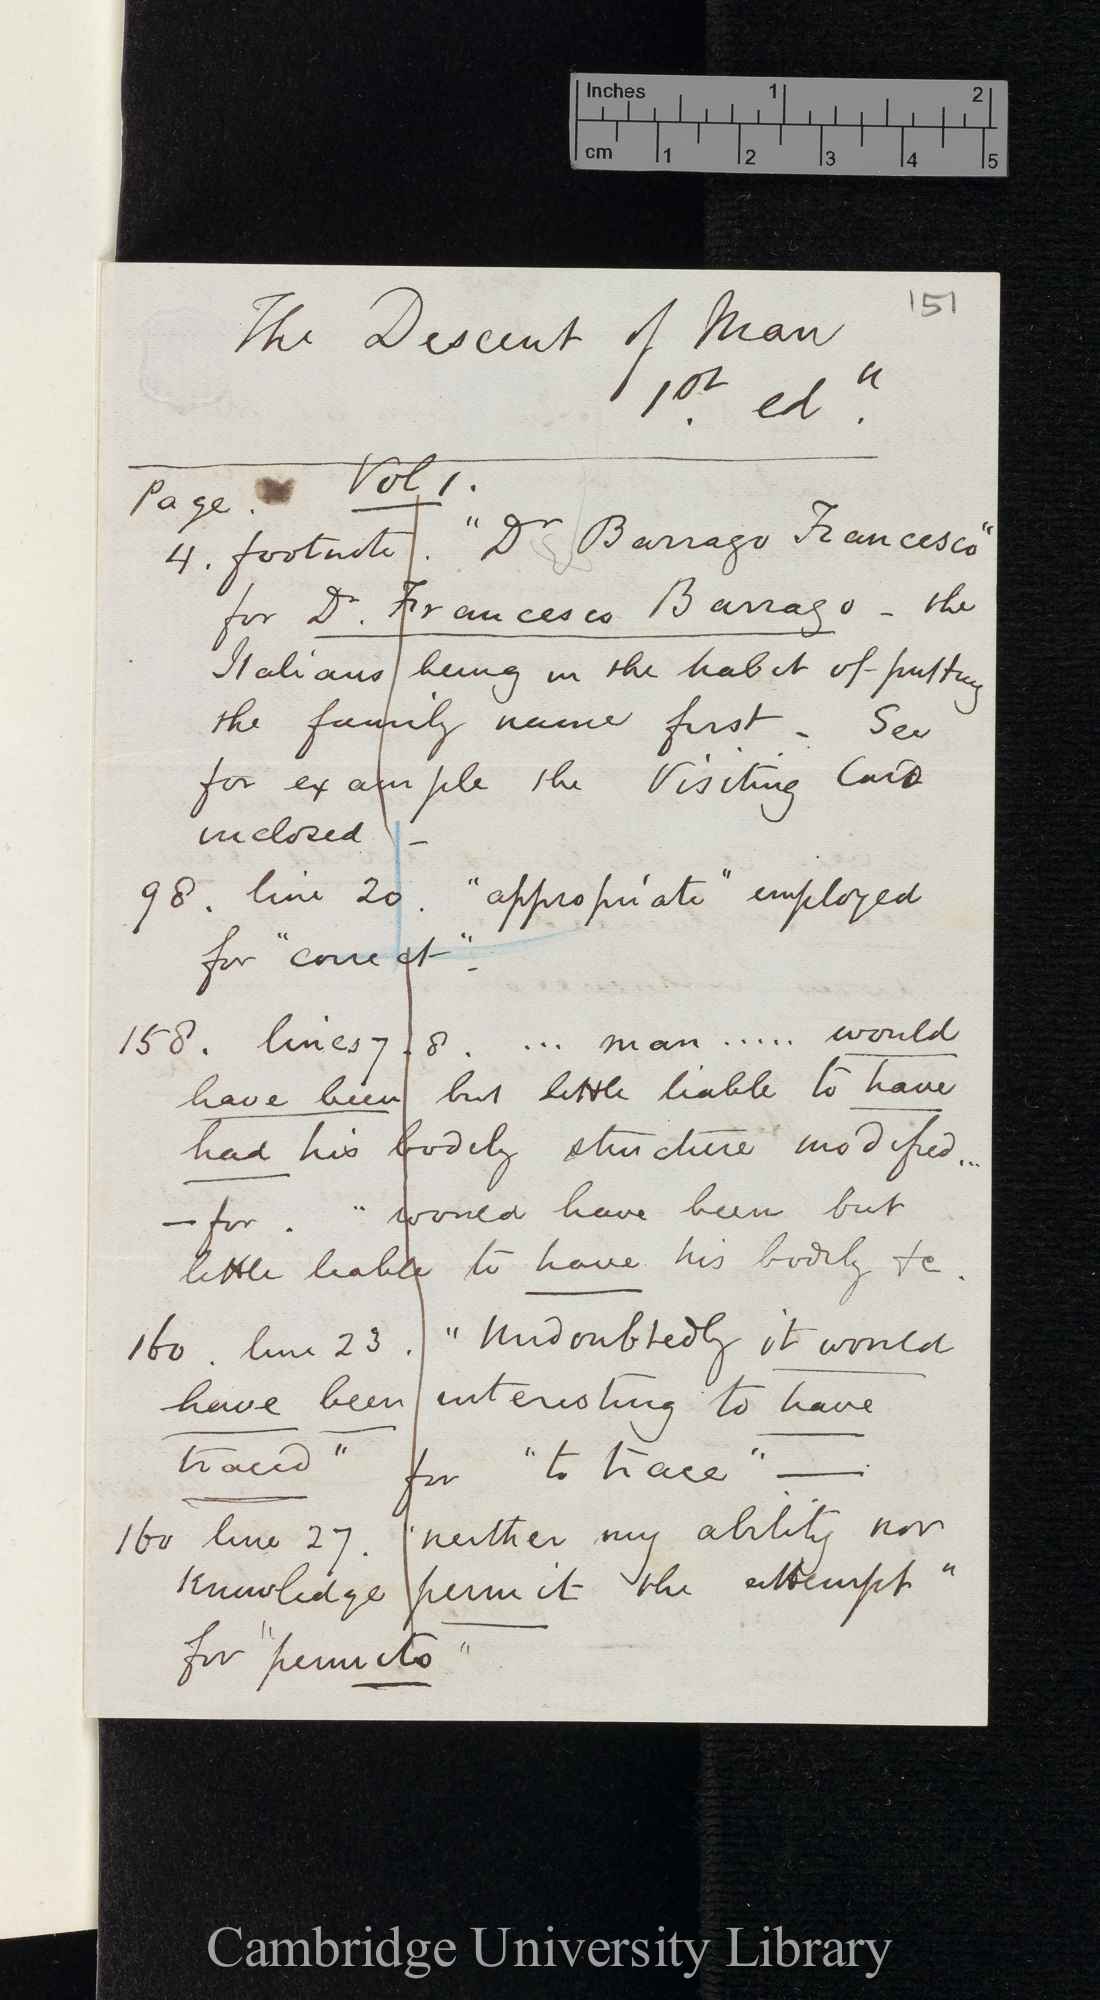 Inches 1 2
cm 1 2 3 4 5
151
The Descent of Man
1st. edn.
Vol 1.
Page.
4. footnote. "Dr Barrago Francesco"
for Dr. Francesco Barrago - the
Italians being in the habit of putting
the family name first - See
for example the Visiting Card
inclosed -
98. line 20. "appropriate" employed
for "correct".
158. lines 7.8. ... man ..... would
have been but little liable to have
had his bodily structure modified...
— for. "would have been but
little liable to have his bodily &c.
160. line 23. "Undoubtedly it would
have been interesting to have
traced" for "to trace" —
160 line 27. "neither my ability nor
knowledge permit the attempt"
for "permits"
Cambridge University Library